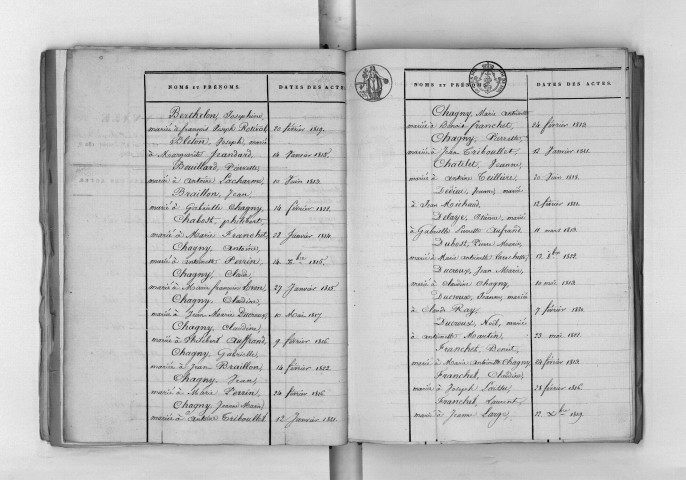 NOMS ET PRÉNOMS. DATES DES ACTES.
Berthelon, Josephine,
mariée à françois Joseph Rotival 20 février 1819.
Joseph, marié
à Marguerite Jeandard, 14 Janvier 1815.
Bouillard, Pierrette,
mariée à antoine Lacharme, 11 Juin 1813.
Braillon, Jean,
marié à Gabrielle Chagny, 14 février 1822.
Chabost, philibert,
marié à Marie Franchet, 28 Janvier 1814.
Chagny, antoine,
marié à antoinette Perrin, 14 Xbre 1815.
Chagny, Claude,
marié à Marie françoise 27 Janvier 1815.
Chagny, Claudine,
mariée à Jean Marie Ducroux, 10 Mai 1817.
Chagny, Claudine,
mariée à Philibert Auffrand, 9 février 1816.
Chagny, Gabrielle,
mariée à Jean Braillon, 14 février 1822.
Chagny, Jean,
marié à Marie Perrin, 24 février 1816.
Chagny, Jeanne Marie,
mariée à antoine Triboullet, 12 Janvier 1821.
NOMS ET PRÉNOMS DATES DES ACTES.
Chagny, Marie antoinette
mariée à Benoit franchet, 24 février 1813.
Chagny, Pierrette,
mariée à Jean Triboullet, 12 Janvier 1821.
Chatelet, Jeanne,
mariée à antoine Tillier, 20 Juin 1818.
Dédieu, Jeanne, mariée
à Jean Michaud, 12 février 1821.
Delaye, Etienne, marié
à Gabrielle Aufrand, 11 mars 1813.
Dubost, Pierre Marie,
marié à Marie antoinette 17 8bre 1822.
Ducroux, Jean Marie,
marié à Claudine Chagny, 10 mai 1817.
Ducroux, Jeanne, mariée
à Claude Ray, 7 février
Ducroux, marié
antoinette Martin, 23 mai
Franchet, Benoit,
marié à Marie Antoinette Chagny, 24 février 1813.
Franchet, Claudine,
mariée à Joseph 28 février 1816.
Franchet, Laurent,
marié à Jeanne Large, 22 Xbre 1819.